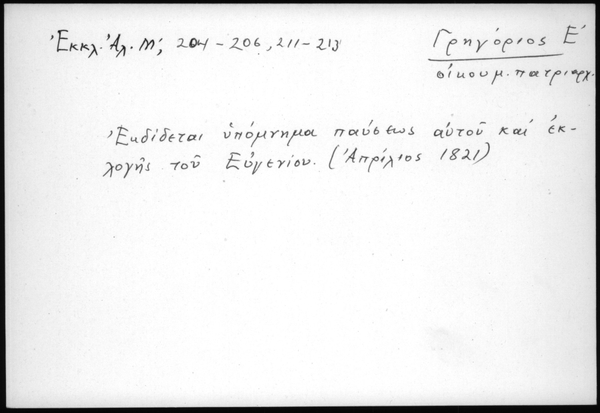 Ἐκκλ. Ἀλ. Μ', 204 - 206, 211 - 213
Γρηγόριος Ε'
οἰκουμ. πατριαρχ.
Ἐκδίδεται ὑπόμνημα παύσεως αὐτοῦ καί ἐκ-
λογῆς τοῦ Εὐγενίου. (Ἀπρίλιος 1821)